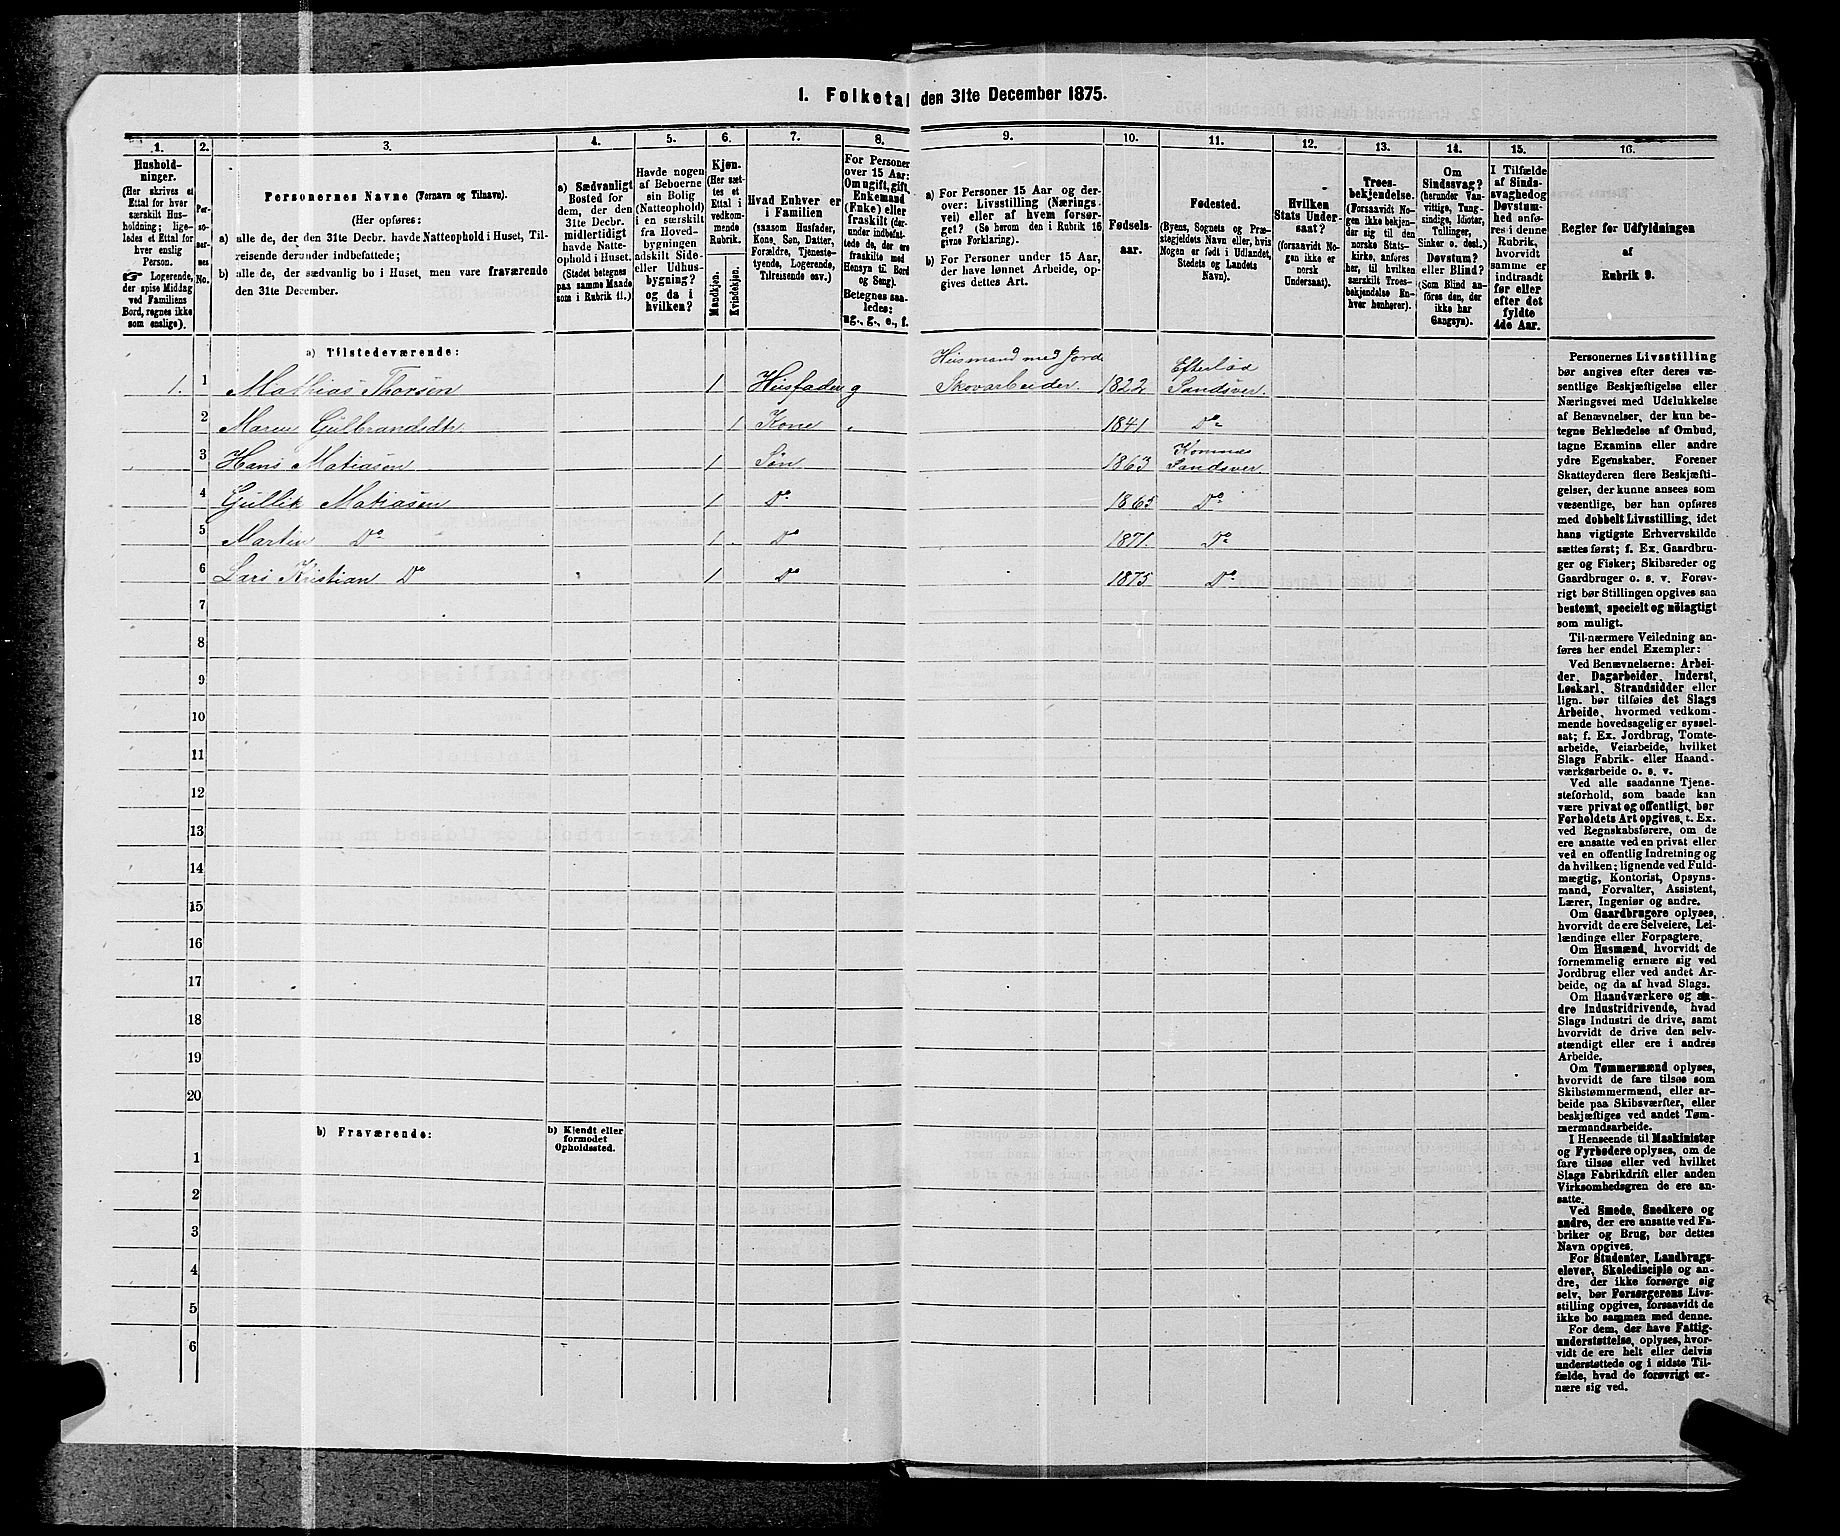 1. Folketal den 31te December 1875.
1.
Hushold-
ninger.
(Her skrives et
Ettal for hver
særskilt Hus-
holdning; lige-
ledes et Ettal for
hver enslig
Person.
☞ Logerende,
der spise Middag
ved Familiens
Bord, regnes ikke
som enslige).
2.
Per-
so-
ner-
nes
No.
3.
Personernes Navne (Fornavn og Tilnavn).
(Her opføres:
a) alle de, der den 31te Decbr. havde Natteophold i Huset, Til-
reisende derunder indbefattede;
b) alle de, der sædvanlig bo i Huset, men vare fraværende
den 31te December.
4.
a) Sædvanligt
Bosted for
dem, der den
31te Decbr.
midlertidigt
havde Natte-
ophold i Huset.
(Stedet betegnes
paa samme Maade
som i Rubrik 11.)
5.
Havde nogen
af Beboerne
sin Bolig
(Natteophold)
i en særskilt
fra Hoved-
bygningen
adskilt Side-
eller Udhus-
bygning?
og da i
hvilken?
6.
Kjøn.
(Her sæt-
tes et
Ettal i
vedkom-
mende
Rubrik.
Mandkjøn.
Kvindekjøn.
7.
Hvad Enhver er
i Familien
(saasom Husfader,
Kone, Søn, Datter,
Forældre, Tjeneste-
tyende, Logerende,
Tilreisende osv.)
8.
For Personer
over 15 Aar:
Om ugift, gift,
Enkemand
(Enke) eller
fraskilt (der-
under indbefat-
tede de, der ere
fraskilte med
Hensyn til Bord
og Seng).
Betegnes saa-
ledes:
ug., g., e., f.
9.
a) For Personer 15 Aar og der-
over: Livsstilling (Nærings-
vei) eller af hvem forsør-
get? (Se herom den i Rubrik 16
givne Forklaring).
b) For Personer under 15 Aar,
der have lønnet Arbeide, op-
gives dettes Art.
10.
Fødsels-
aar.
11.
Fødested.
(Byens, Sognets og Præ-
stegjeldets Navn eller, hvis
Nogen er født i Udlandet,
Stedets og Landets
Navn).
12.
Hvilken
Stats Under-
saat?
(forsaavidt No-
gen ikke er
norsk
Undersaat).
13.
Troes-
bekjendelse.
(Forsaavidt No-
gen ikke bekjen-
der sig til den
norske Stats-
kirke, anføres
her, til hvilken
særskilt Troes-
bekjendelse En-
hver henhører).
14.
Om
Sindssvag?
(herunder Van-
vittige, Tung-
sindige, Idioter,
Tullinger,
Sinker o. desl.)
Døvstum?
eller Blind?
(Som Blind an-
føres den, der
ikke har
Gangsyn).
15.
I Tilfælde
af Sinds-
svaghed og
Døvstum-
hed anfø-
res i denne
Rubrik,
hvorvidt
samme er
indtraadt
før eller
efter det
fyldte
4de Aar.
16.
Regler for Udfyldningen
af
Rubrik 9.
a) Tilstedeværende:
Husmand med Jord
Efteløt
1. 1 Mathias Thorsen 1 Husfader g Skovarbeider. 1822 Sandsver.
2 Maren Gulbrandsdtr 1 Kone " 1841 Do
Komnes
3 Hans Matiasen 1 Søn 1863 Sandsver.
4 Gullik Matiasen 1 Do 1865 Do
5 Martin Do 1 Do 1871. Do
6 Lars Kristian Do 1 Do 1875 Do
7
8
9
10
11
12
13
14
15
16
17
18
19
20
b) Fraværende:
b) Kjendt eller
formodet
Opholdssted.
1
2
3
4
5
6
Personernes Livsstilling
bør angives efter deres væ-
sentlige Beskjæftigelse eller
Næringsvei med Udelukkelse
af Benævnelser, der kun be-
tegne Beklædelse af Ombud,
tagne Examina eller andre
ydre Egenskaber. Forener
Skatteyderen flere Beskjæfti-
gelser, der kunne ansees som
væsentlige, bør han opføres
med dobbelt Livsstilling, idet
hans vigtigste Erhvervskilde
sættes først; f. Ex. Gaardbru-
ger og Fisker; Skibsreder og
Gaardbruger o. s. v. Forøv-
rigt bør Stillingen opgives saa
bestemt, specielt og nöiagtigt
som muligt.
Til nærmere Veiledning an-
føres her endel Exempler:
Ved Benævnelserne: Arbei-
der, Dagarbeider, Inderst,
Løskarl, Strandsidder eller
lign. bør tilføies det Slags
Arbeide, hvormed vedkom-
mende hovedsagelig er syssel-
sat; f. Ex. Jordbrug, Tomte-
arbeide, Veiarbeide, hvilket
Slags Fabrik- eller Haand-
værksarbeide o. s. v.
Ved alle saadanne Tjene-
steforhold, som baade kan
være privat og offentligt, bør
Forholdets Art opgives, t. Ex.
ved Regnskabsførere, om de
ere ansatte ved en privat eller
ved en offentlig Indretning og
da hvilken; lignende ved Fuld-
mægtig, Kontorist, Opsyns-
mand, Forvalter, Assistent,
Lærer, Ingeniør og andre.
Om Gaardbrugere oplyses,
hvorvidt de ere Selveiere, Lei-
lændinge eller Forpagtere.
Om Husmænd, hvorvidt de
fornemmelig ernære sig ved
Jordbrug eller ved andet Ar-
beide, og da af hvad Slags.
Om Haandværkere og an-
dre Industridrivende, hvad
Slags Industri de drive, samt
hvorvidt de drive den selv-
stændigt eller ere i andres
Arbeide.
Om Tømmermænd oplyses,
hvorvidt de fare tilsøs som
Skibstømmermænd, eller ar-
beide paa Skibsværfter, eller
beskjæftiges ved andet Tøm-
mermandsarbeide.
I Henseende til Maskinister
og Fyrbødere oplyses, om de
fare tilsøs eller ved hvilket
Slags Fabrikdrift eller anden
Virksomhedsgren de ere an-
satte.
Ved Smede, Snedkere og
andre, der ere ansatte ved Fa-
briker og Brug, bør dettes
Navn opgives.
For Studenter, Landbrugs-
elever, Skoledisciple og an-
dre, der ikke forsørge sig
selv, bør Forsørgerens Livs-
stilling opgives, forsaavidt de
ikke bo sammen med denne.
For dem, der have Fattig-
understøttelse, oplyses, hvor-
vidt de ere helt eller delvis
understøttede og i sidste Til-
fælde, hvad de forøvrigt er-
nære sig ved.